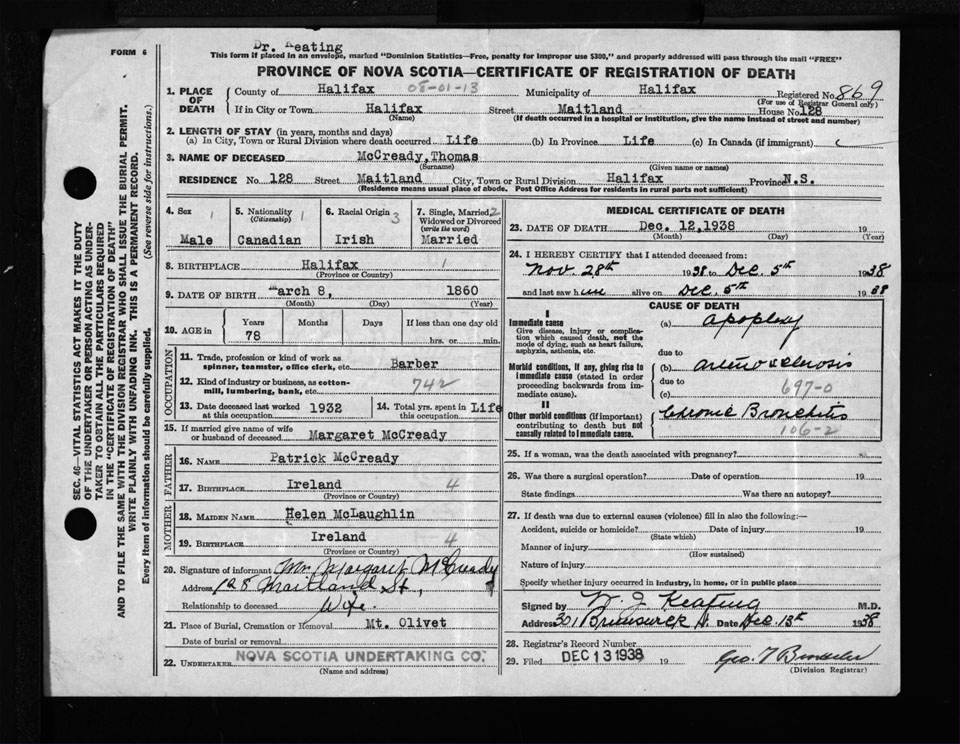 Dr. Keating
FORM 6
This form if placed in an envelope, marked "Dominion Statistics—Free, penalty for improper use $300," and properly addressed will pass through the mail "FREE"
PROVINCE OF NOVA SCOTIA—CERTIFICATE OF REGISTRATION OF DEATH
1. PLACE OF DEATH
County of Halifax 08-01-13 Municipality of Halifax Registered No. 869
(For use of Registrar General only)
If in City or Town Halifax Street Maitland House No. 128
(Name) (If death occurred in a hospital or institution, give the name instead of street and number)
2. LENGTH OF STAY (in years, months and days)
(a) In City, Town or Rural Division where death occurred Life (b) In Province Life (c) In Canada (if immigrant)
3. NAME OF DECEASED McCready, Thomas
(Surname) (Given name or names)
RESIDENCE No. 128 Street Maitland City, Town or Rural Division Halifax Province N.S.
(Residence means usual place of abode. Post Office Address for residents in rural parts not sufficient)
4. Sex 1
Male
5. Nationality (Citizenship) 1
Canadian
6. Racial Origin 3
Irish
7. Single, Married, Widowed or Divorced (write the word) 2
Married
8. BIRTHPLACE Halifax 1
(Province or Country)
9. DATE OF BIRTH arch 8, 1860
(Month) (Day) (Year)
10. AGE in
Years Months Days If less than one day old
78 hrs. or min.
OCCUPATION
11. Trade, profession or kind of work as spinner, teamster, office clerk, etc. Barber
12. Kind of industry or business, as cotton-mill, lumbering, bank, etc. 742
13. Date deceased last worked at this occupation 1932
14. Total yrs. spent in this occupation Life
15. If married give name of wife or husband of deceased Margaret McCready
FATHER
16. NAME Patrick McCready
17. BIRTHPLACE Ireland 4
(Province or Country)
MOTHER
18. MAIDEN NAME Helen McLaughlin
19. BIRTHPLACE Ireland 4
(Province or Country)
20. Signature of informant Mrs Margaret McCready
Address 128 Maitland St,
Relationship to deceased Wife.
21. Place of Burial, Cremation or Removal Mt. Olivet
Date of burial or removal
22. UNDERTAKER NOVA SCOTIA UNDERTAKING CO.
(Name and address)
MEDICAL CERTIFICATE OF DEATH
23. DATE OF DEATH Dec. 12, 1938 19
(Month) (Day) (Year)
24. I HEREBY CERTIFY that I attended deceased from:
Nov 28th 1938 to Dec. 5th 1938
and last saw him alive on Dec. 5th 1938
CAUSE OF DEATH
I
Immediate cause
Give disease, injury or complication which caused death, not the mode of dying, such as heart failure, asphyxia, asthenia, etc.
(a) apoplexy
due to
Morbid conditions, if any, giving rise to immediate cause (stated in order proceeding backwards from immediate cause).
(b) arteriosclerosis
due to 697-0
(c)
II
Other morbid conditions (if important) contributing to death but not causally related to immediate cause.
Chronic Bronchitis
106-2
25. If a woman, was the death associated with pregnancy?
26. Was there a surgical operation? Date of operation 19
State findings Was there an autopsy?
27. If death was due to external causes (violence) fill in also the following:—
Accident, suicide or homicide? Date of injury 19
(State which)
Manner of injury
(How sustained)
Nature of injury
Specify whether injury occurred in industry, in home, or in public place
Signed by W. J. Keating M.D.
Address 301 Brunswick St. Date Dec. 13th 1938
28. Registrar's Record Number
29. Filed DEC 13 1938 19
(Division Registrar)
SEC. 46—VITAL STATISTICS ACT MAKES IT THE DUTY
OF THE UNDERTAKER OR PERSON ACTING AS UNDER-
TAKER TO OBTAIN ALL THE PARTICULARS REQUIRED
IN THE "CERTIFICATE OF REGISTRATION OF DEATH"
AND TO FILE THE SAME WITH THE DIVISION REGISTRAR WHO SHALL ISSUE THE BURIAL PERMIT.
WRITE PLAINLY WITH UNFADING INK. THIS IS A PERMANENT RECORD.
Every item of information should be carefully supplied. (See reverse side for instructions.)